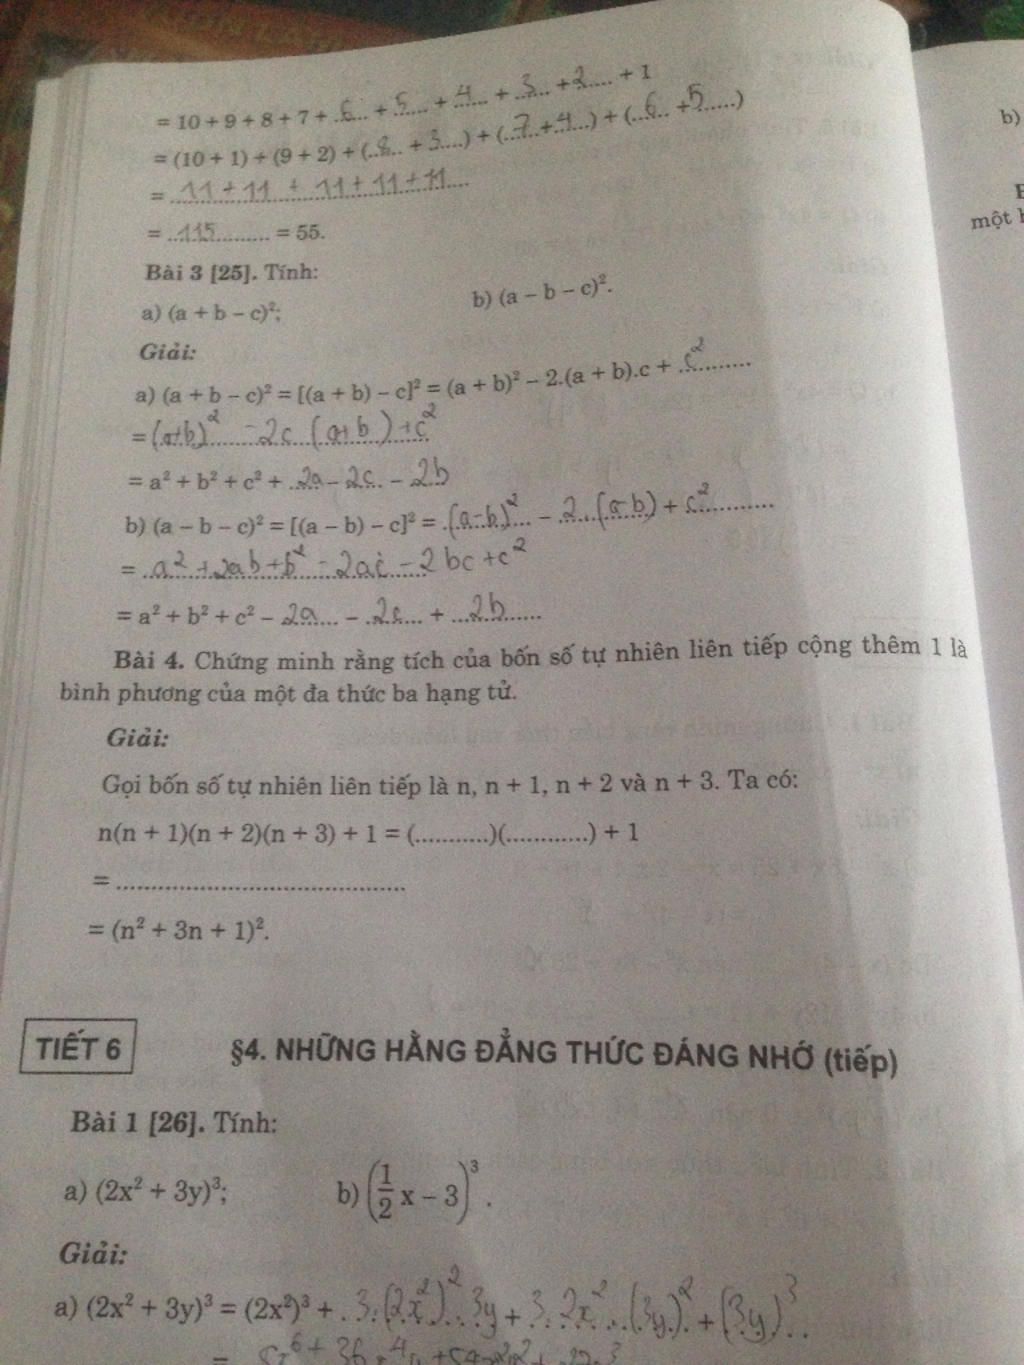 = 10 + 9 + 8 + 7 + 6 + 5 + 4 + 3 + 2 + 1
= (10 + 1) + (9 + 2) + (8 + 3) + (7 + 4) + (6 + 5)
= 11 + 11 + 11 + 11 + 11
= 115 = 55.
Bài 3 [25]. Tính:
a) (a + b – c)²; b) (a – b – c)².
Giải:
a) (a + b – c)² = [(a + b) – c]² = (a + b)² – 2.(a + b).c + c²
= (a+b)² - 2c (a+b) + c²
= a² + b² + c² + 2a – 2c – 2b
b) (a – b – c)² = [(a – b) – c]² = (a-b)² – 2.(a-b) + c²
= a² + 2ab + b² - 2ac - 2bc + c²
= a² + b² + c² – 2a – 2c + 2b
Bài 4. Chứng minh rằng tích của bốn số tự nhiên liên tiếp cộng thêm 1 là
bình phương của một đa thức ba hạng tử.
Giải:
Gọi bốn số tự nhiên liên tiếp là n, n + 1, n + 2 và n + 3. Ta có:
n(n + 1)(n + 2)(n + 3) + 1 = (...........)(............) + 1
= .......................................
= (n² + 3n + 1)².
TIẾT 6 §4. NHỮNG HẰNG ĐẲNG THỨC ĐÁNG NHỚ (tiếp)
Bài 1 [26]. Tính:
a) (2x² + 3y)³; b) (1/2 x – 3)³.
Giải:
a) (2x² + 3y)³ = (2x²)³ + 3.(2x²)².3y + 3.2x².(3y)² + (3y)³
b)
một